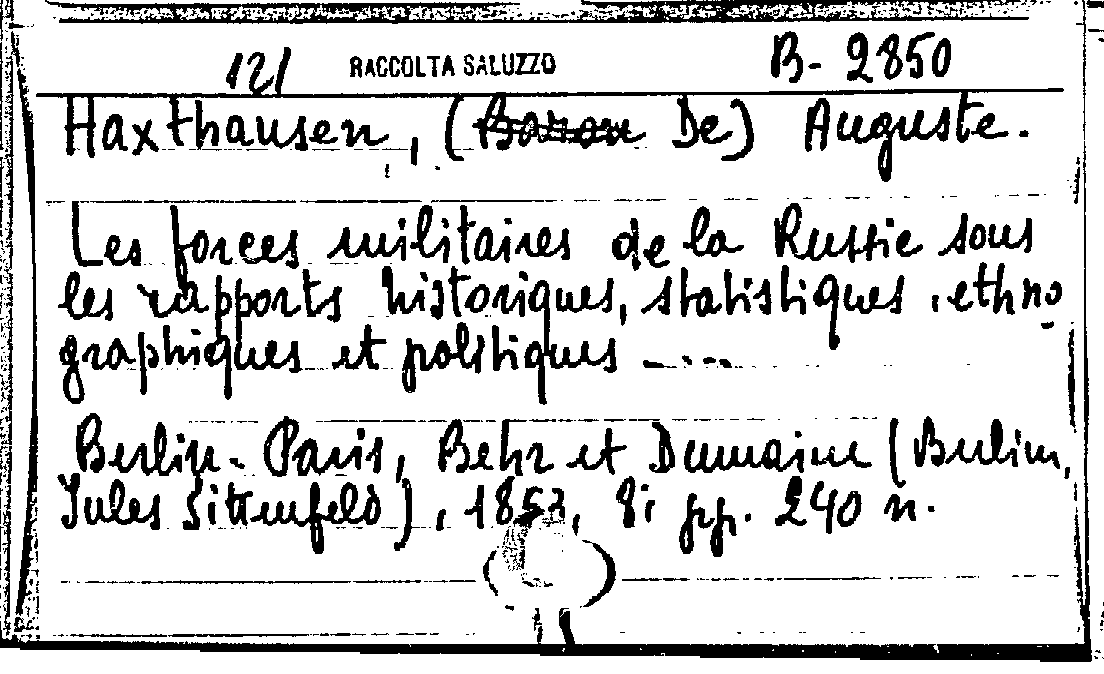 121 RACCOLTA SALUZZO B- 2850
Haxthausen, (Baron De) Auguste.
Les forces militaires de la Russie sous
les rapports historiques, statistiques, ethno
graphiques et politiques - ...
Berlin - Paris, Behr et Dumaine (Berlin,
Jules Sittenfeld), 1853, 8i pp. 240 n.